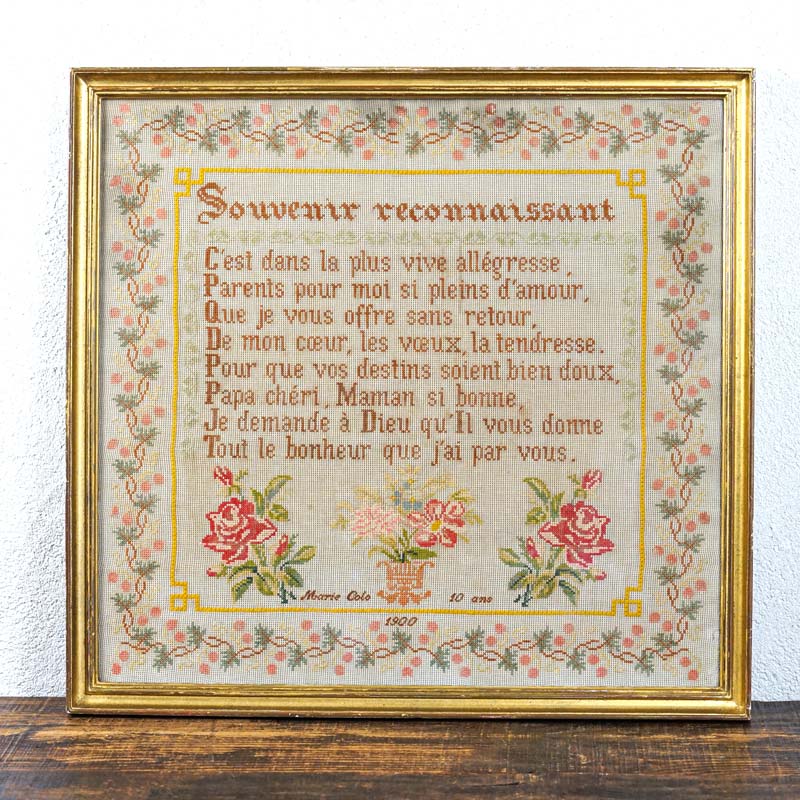 Souvenir reconnaissant
C'est dans la plus vive allégresse,
Parents pour moi si pleins d'amour,
Que je vous offre sans retour,
De mon cœur, les vœux, la tendresse.
Pour que vos destins soient bien doux,
Papa chéri, Maman si bonne,
Je demande à Dieu qu'Il vous donne
Tout le bonheur que j'ai par vous.
Marie Colo 10 ans
1900